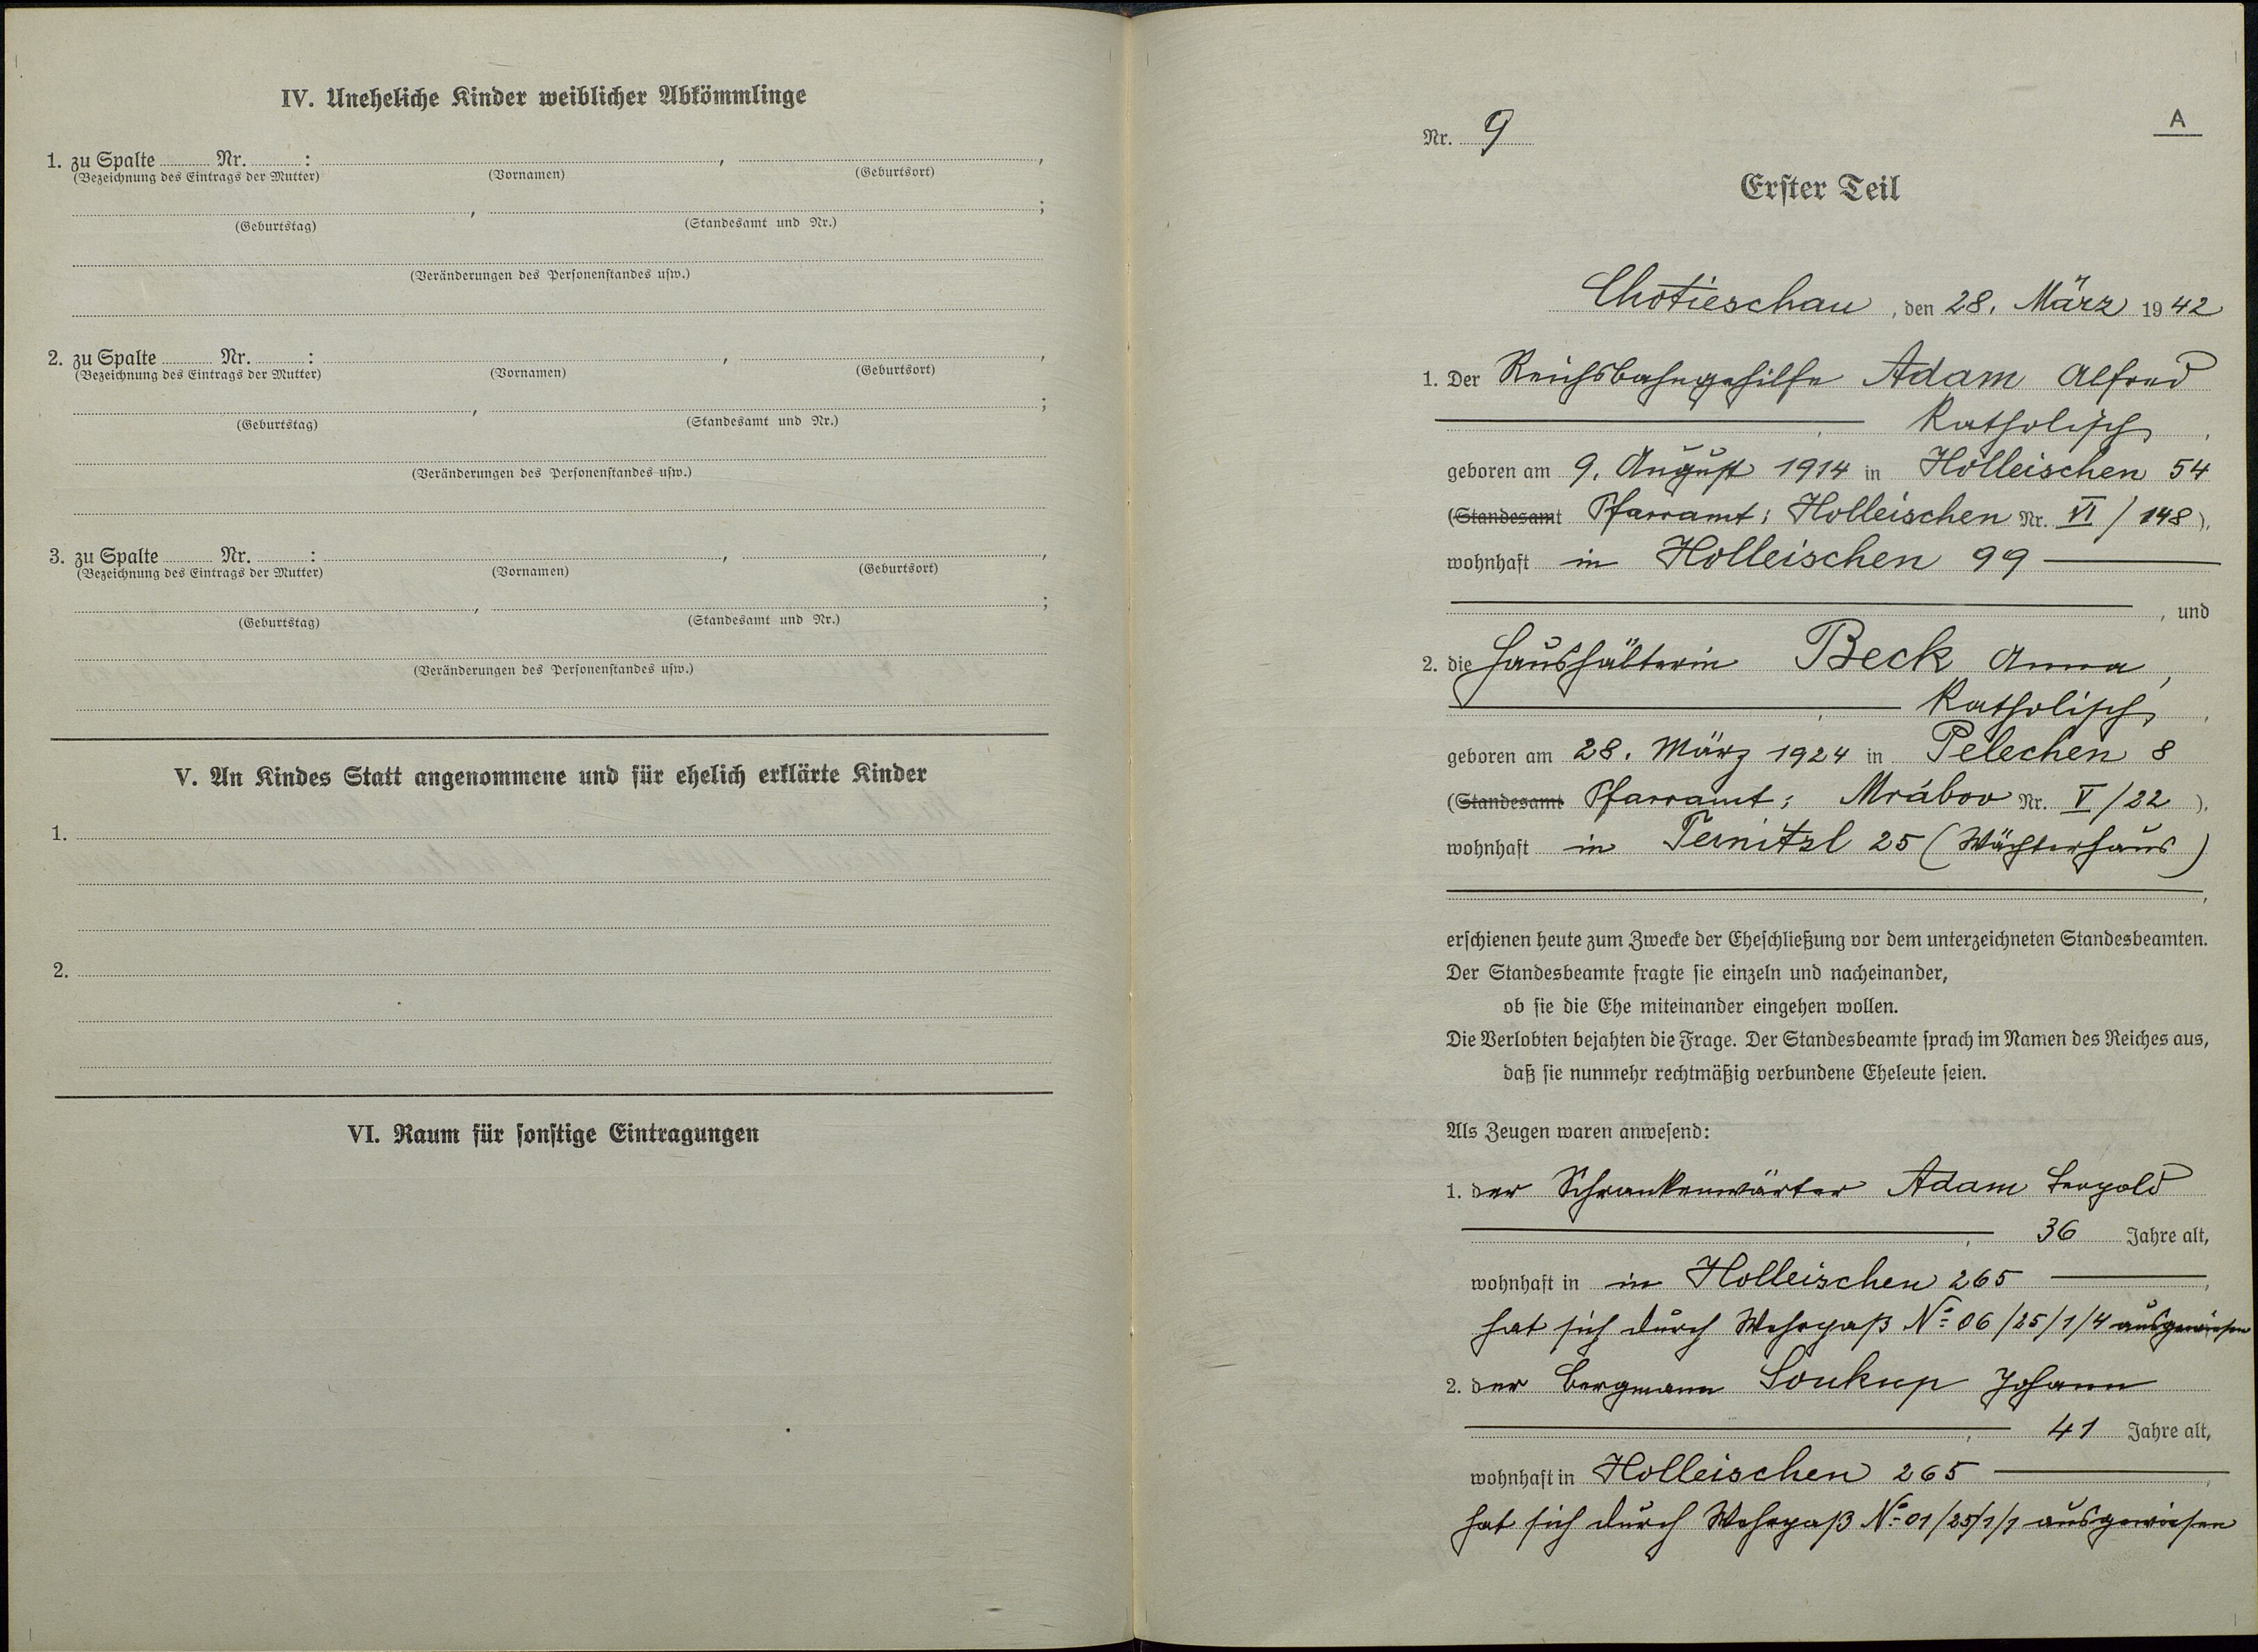 IV. Uneheliche Kinder weiblicher Abkömmlinge
1. zu Spalte Nr. : , ,
(Bezeichnung des Eintrags der Mutter) (Vornamen) (Geburtsort)
, ;
(Geburtstag) (Standesamt und Nr.)
(Veränderungen des Personenstandes usw.)
2. zu Spalte Nr. : , ,
(Bezeichnung des Eintrags der Mutter) (Vornamen) (Geburtsort)
, ;
(Geburtstag) (Standesamt und Nr.)
(Veränderungen des Personenstandes usw.)
3. zu Spalte Nr. : , ,
(Bezeichnung des Eintrags der Mutter) (Vornamen) (Geburtsort)
, ;
(Geburtstag) (Standesamt und Nr.)
(Veränderungen des Personenstandes usw.)
V. An Kindes Statt angenommene und für ehelich erklärte Kinder
1.
2.
VI. Raum für sonstige Eintragungen
A
Nr. 9
Erster Teil
Chotieschau, den 28. März 1942
1. Der Reichsbahngehilfe Adam Alfred
, Katholisch,
geboren am 9. August 1914 in Holleischen 54
(Standesamt Pfarramt: Holleischen Nr. VI/148),
wohnhaft in Holleischen 99
, und
2. die Haushälterin Beck Anna,
, Katholisch,
geboren am 28. März 1924 in Pelechen 8
(Standesamt Pfarramt: Mrákov Nr. V/22),
wohnhaft in Ternitzl 25 (Wächterhaus)
,
erschienen heute zum Zwecke der Eheschließung vor dem unterzeichneten Standesbeamten.
Der Standesbeamte fragte sie einzeln und nacheinander,
ob sie die Ehe miteinander eingehen wollen.
Die Verlobten bejahten die Frage. Der Standesbeamte sprach im Namen des Reiches aus,
daß sie nunmehr rechtmäßig verbundene Eheleute seien.
Als Zeugen waren anwesend:
1. der Schrankenwärter Adam Leopold
, 36 Jahre alt,
wohnhaft in in Holleischen 265,
hat sich durch Wehrpaß No 06/25/1/4 ausgewiesen
2. der Bergmann Soukup Johann
, 41 Jahre alt,
wohnhaft in Holleischen 265,
hat sich durch Wehrpaß No 01/25/1/1 ausgewiesen